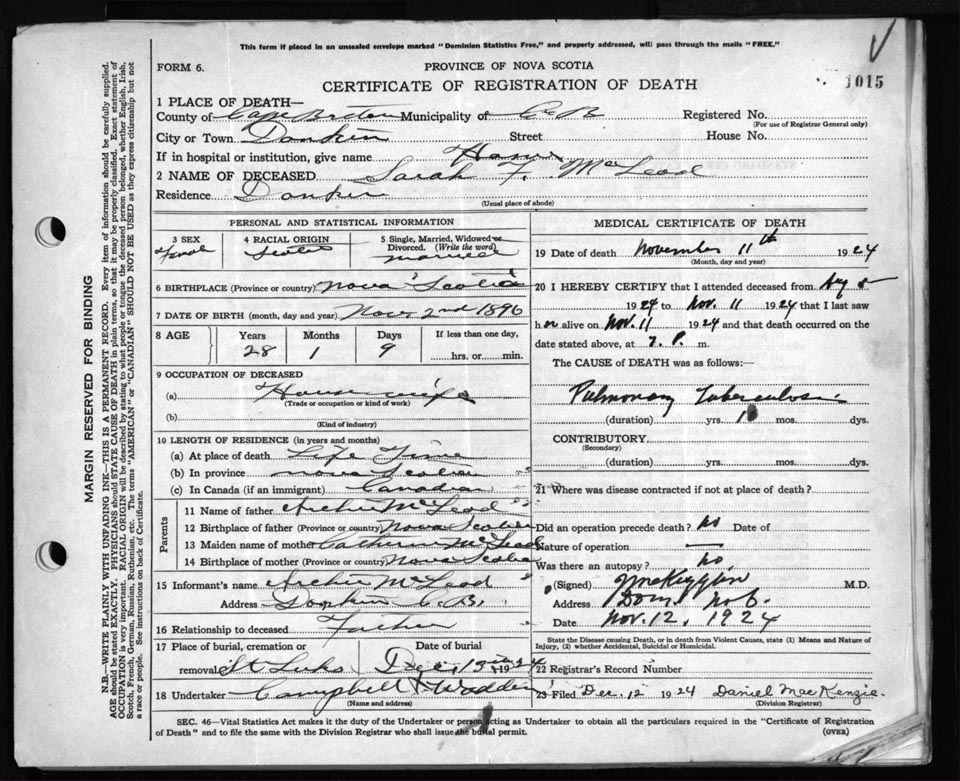 This form if placed in an unsealed envelope marked "Dominion Statistics Free," and properly addressed, will pass through the mails "FREE."
FORM 6.
PROVINCE OF NOVA SCOTIA
CERTIFICATE OF REGISTRATION OF DEATH
1015
1 PLACE OF DEATH—
County of Cape Breton Municipality of C B Registered No.
(For use of Registrar General only)
City or Town Donkin Street House No.
If in hospital or institution, give name Home
2 NAME OF DECEASED Sarah F. McLeod
Residence Donkin
(Usual place of abode)
PERSONAL AND STATISTICAL INFORMATION
3 SEX 4 RACIAL ORIGIN 5 Single, Married, Widowed or Divorced. (Write the word)
Female Scotch married
6 BIRTHPLACE (Province or country) Nova Scotia
7 DATE OF BIRTH (month, day and year) Nov 2nd 1896
8 AGE Years Months Days If less than one day,
28 1 9 hrs. or min.
9 OCCUPATION OF DECEASED
(a) House wife
(Trade or occupation or kind of work)
(b)
(Kind of industry)
10 LENGTH OF RESIDENCE (in years and months)
(a) At place of death Life Time
(b) In province nova Scotian
(c) In Canada (if an immigrant) Canadian
Parents
11 Name of father Archie McLeod
12 Birthplace of father (Province or country) Nova Scotia
13 Maiden name of mother Catherine McLeod
14 Birthplace of mother (Province or country) Nova Scotia
15 Informant's name Archie McLeod
Address Donkin C.B.
16 Relationship to deceased Father
17 Place of burial, cremation or removal Date of burial
St Luks Dec 13 1924
18 Undertaker Campbell & Wadden
(Name and address)
MEDICAL CERTIFICATE OF DEATH
19 Date of death November 11th 1924
(Month, day and year)
20 I HEREBY CERTIFY that I attended deceased from
1924 to Nov. 11 1924 that I last saw
her alive on Nov. 11 1924 and that death occurred on
date stated above, at 7 P. m.
The CAUSE of DEATH was as follows:—
Pulmonary Tuberculosis
(duration) yrs. mos. dys.
CONTRIBUTORY
(Secondary)
(duration) yrs. mos. dys.
21 Where was disease contracted if not at place of death?
Did an operation precede death? no Date of
Nature of operation —
Was there an autopsy? no
(Signed) M.D.
Address Dom. No 6.
Date Nov. 12, 1924
State the Disease causing Death, or in death from Violent Causes, state (1) Means and Nature of Injury, (2) whether Accidental, Suicidal or Homicidal.
22 Registrar's Record Number
23 Filed Dec 12 1924 Daniel MacKenzie
(Division Registrar)
SEC. 46—Vital Statistics Act makes it the duty of the Undertaker or person acting as Undertaker to obtain all the particulars required in the "Certificate of Registration
of Death" and to file the same with the Division Registrar who shall issue the burial permit. (OVER)
MARGIN RESERVED FOR BINDING
N.B.—WRITE PLAINLY WITH UNFADING INK—THIS IS A PERMANENT RECORD. Every item of information should be carefully supplied.
AGE should be stated EXACTLY. PHYSICIANS should STATE CAUSE OF DEATH in plain terms, so that it may be properly classified. Exact statement of
OCCUPATION is very important. RACIAL ORIGIN will be described by stating to what people or tongue the deceased person belonged, whether English, Irish,
Scotch, French, German, Russian, Ruthenian, etc. The terms "AMERICAN" or "CANADIAN" SHOULD NOT BE USED as they express citizenship but not
a race or people. See instructions on back of Certificate.